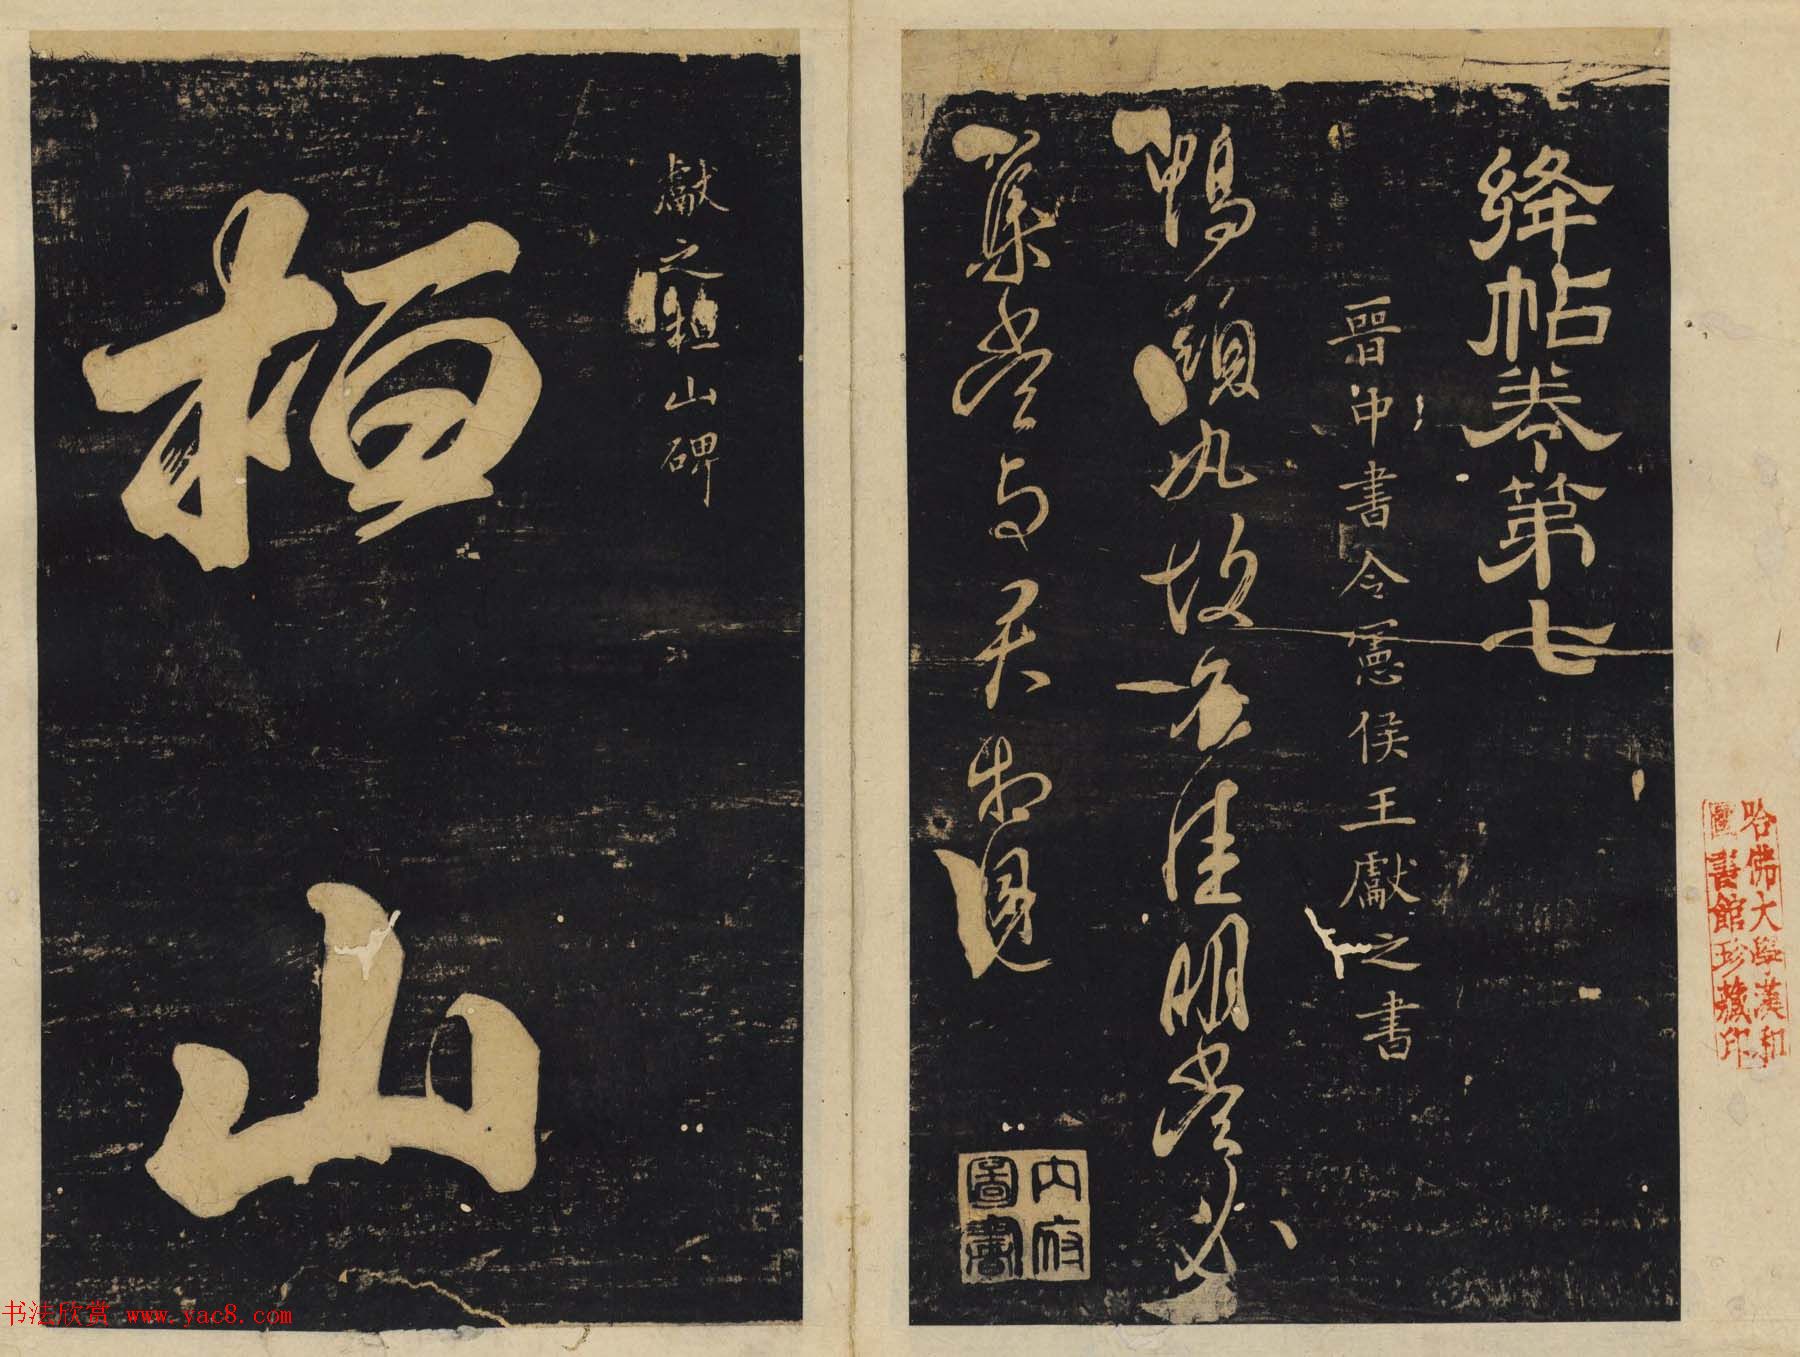 絳帖卷第七
晉中書令憲侯王獻之書
鴨頭丸故不佳明當必
集當與君相見
內府
圖書
哈佛大學漢和
圖書館珍藏印
獻之桓山碑
桓山
书法欣赏 www.yac8.com